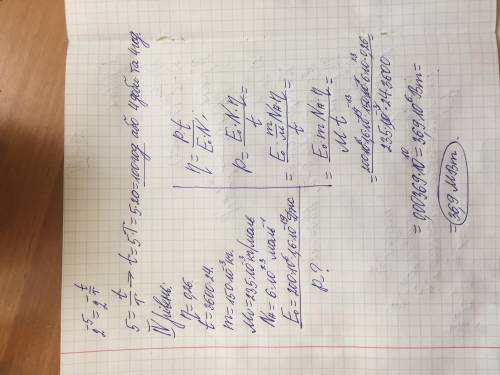 2^-5 = 2^-t/T
5 = t/T → t = 5T = 5·20 = 100 год або 4 доби та 4 год.
IV рівень.
η = 0,26
t = 3600·24.
m = 150·10^-3 кг.
M = 235·10^-3 кг/моль
N_A = 6·10^23 моль^-1
E₀ = 200·10^6·1,6·10^-19 Дж
P - ?
η = Pt/E₀N;
P = E₀·N·η/t =
= E₀·m/M·N_A·η/t =
= E₀·m·N_A·η/M·t
=
235·10^-3·24·3600
= 0,00369·10^10 = 369·10^6 Вт =
= 369 МВт.